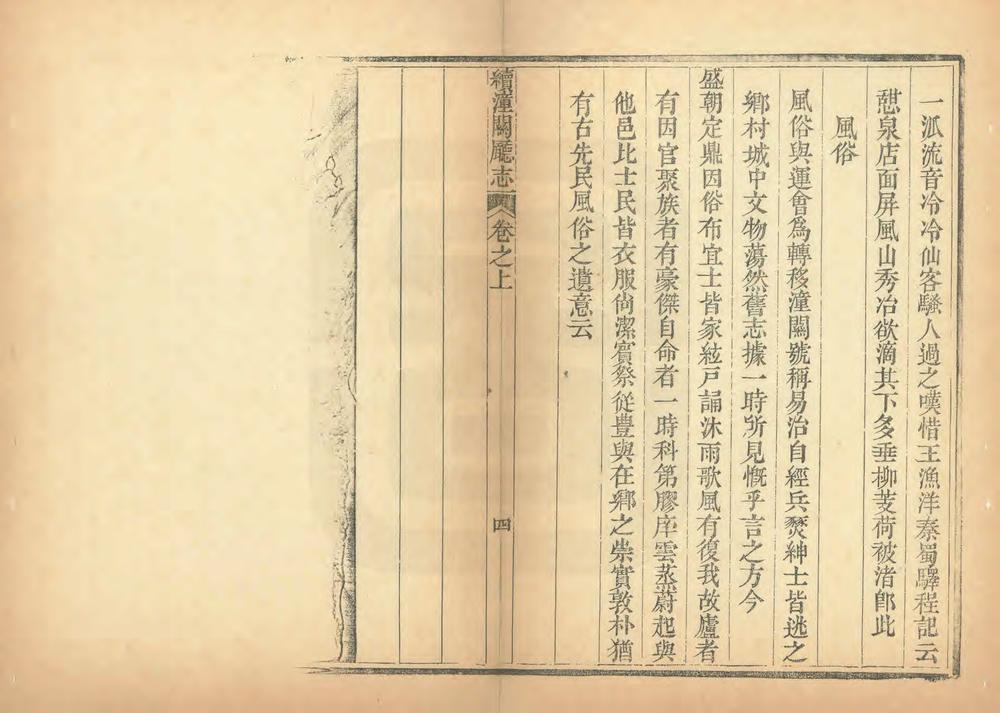 一泒流音冷冷仙客騷人過之嘆惜王漁洋秦蜀驛程記云
憇泉店面屏風山秀冶欲滴其下多垂柳芰荷被渚卽此
風俗
風俗與運會爲轉移潼關號稱易治自經兵燹紳士皆逃之
鄉村城中文物蕩然舊志據一時所見慨乎言之方今
盛朝定鼎因俗布宜士皆家絃戶誦沐雨歌風有復我故廬者
有因官聚族者有豪傑自命者一時科第膠庠雲蒸蔚起與
他邑比士民皆衣服尙潔賓祭從豐與在鄉之崇實敦朴猶
有古先民風俗之遺意云
續潼關廳志 卷之上 四